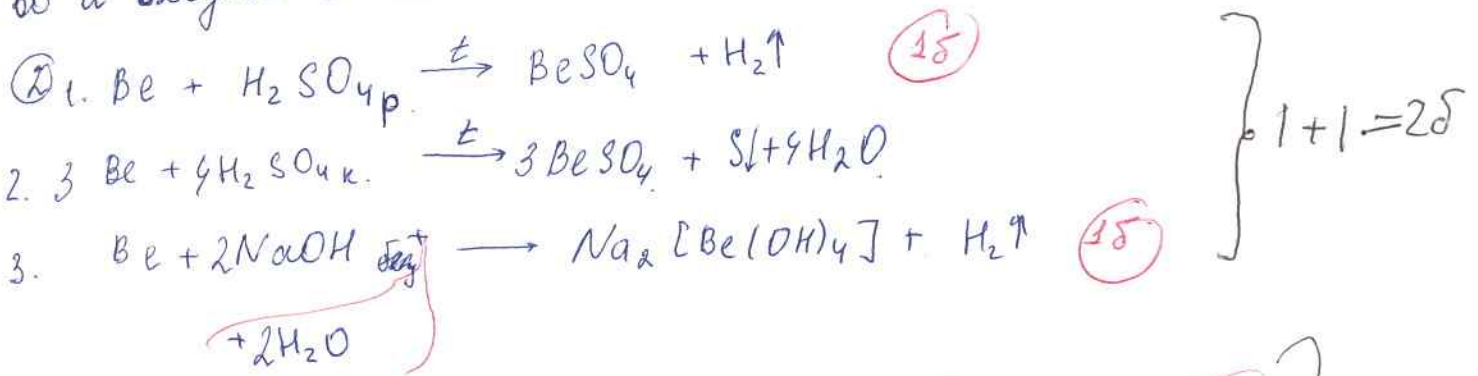 ② 1. Be + H₂SO₄ р. —t→ BeSO₄ + H₂↑ 1б
2. 3 Be + 4H₂SO₄ к. —t→ 3BeSO₄ + S↓ + 4H₂O
3. Be + 2NaOH + → Na₂[Be(OH)₄] + H₂↑ 1б
+ 2H₂O
1 + 1 = 2б